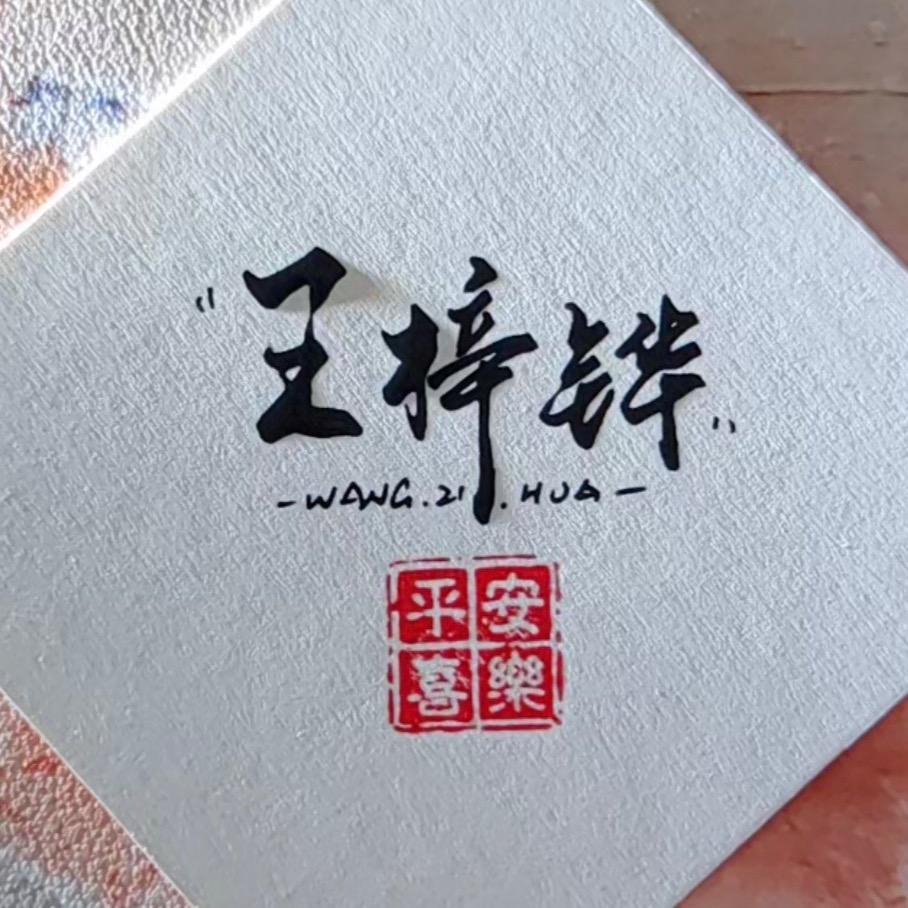 “王梓铧”
-WANG.ZI.HUA-
平安
喜樂